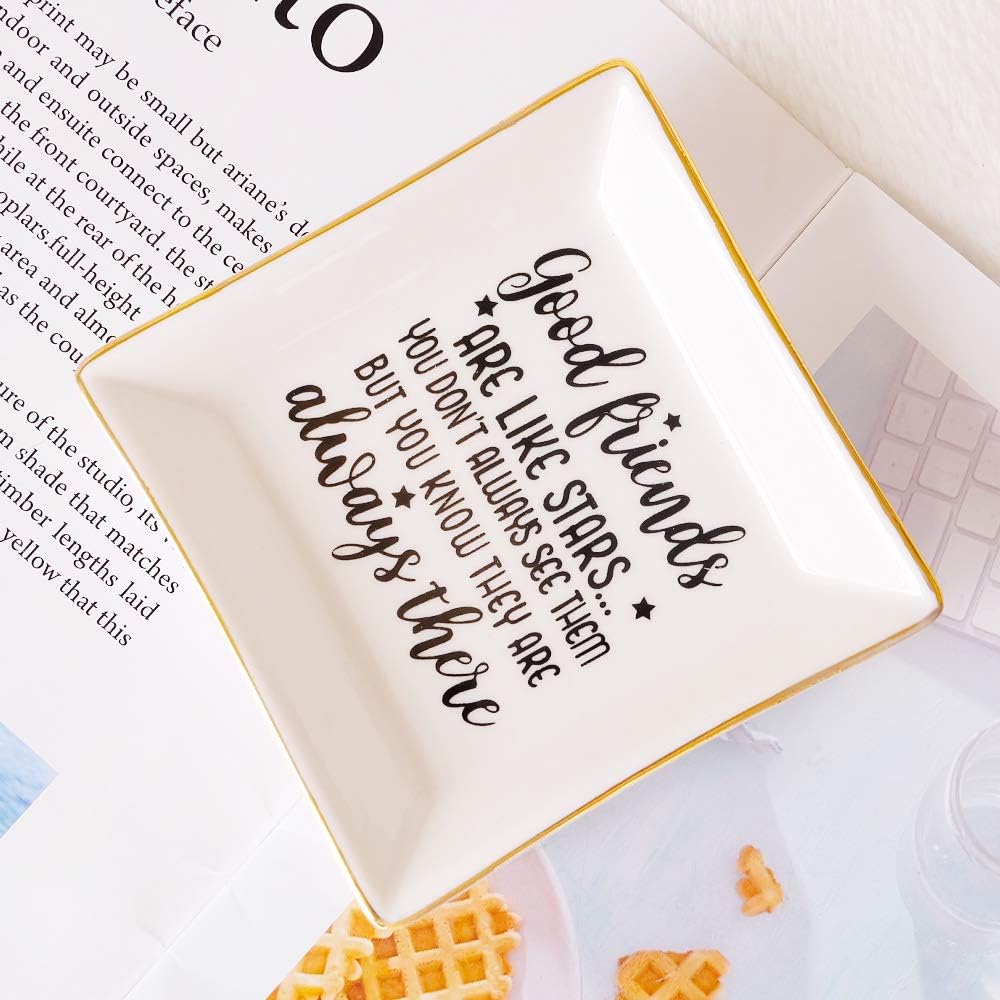 no
eface
print may be small but ariane's de
ndoor and outside spaces, makes
and ensuite connect to the ce
the front courtyard. the st
hile at the rear of the h
oplars.full-height
area and almo
as the cou
ure of the studio, its
m shade that matches
timber lengths laid
yellow that this
Good friends
ARE LIKE STARS...
YOU DON'T ALWAYS SEE THEM
BUT YOU KNOW THEY ARE
always there